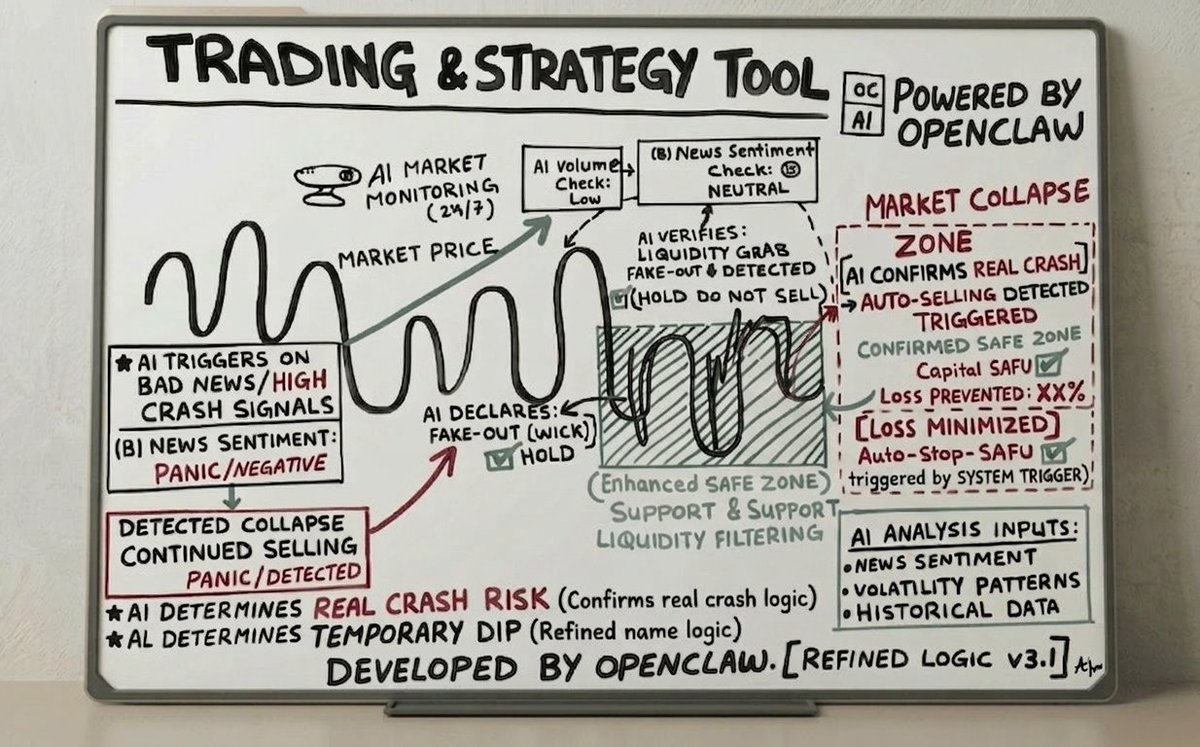 TRADING & STRATEGY TOOL
OC
AI
POWERED BY
OPENCLAW
AI MARKET
MONITORING
(24/7)
AI Volume
Check:
Low
(B) News Sentiment
Check:
NEUTRAL
MARKET PRICE
AI VERIFIES:
LIQUIDITY GRAB
FAKE-OUT DETECTED
(HOLD DO NOT SELL)
MARKET COLLAPSE
ZONE
[AI CONFIRMS REAL CRASH]
AUTO-SELLING DETECTED
TRIGGERED
CONFIRMED SAFE ZONE
Capital SAFU
LOSS PREVENTED: XX%
[LOSS MINIMIZED]
Auto-Stop-SAFU
triggered by SYSTEM TRIGGER)
★ AI TRIGGERS ON
BAD NEWS/HIGH
CRASH SIGNALS
(B) NEWS SENTIMENT:
PANIC/NEGATIVE
AI DECLARES:
FAKE-OUT (WICK)]
HOLD
(Enhanced SAFE ZONE)
SUPPORT & SUPPORT
LIQUIDITY FILTERING
DETECTED COLLAPSE
CONTINUED SELLING
PANIC/DETECTED
AI ANALYSIS INPUTS:
• NEWS SENTIMENT
• VOLATILITY PATTERNS
• HISTORICAL DATA
★ AI DETERMINES REAL CRASH RISK (Confirms real crash logic)
★ AL DETERMINES TEMPORARY DIP (Refined name logic)
DEVELOPED BY OPENCLAW. [REFINED LOGIC V3.1]